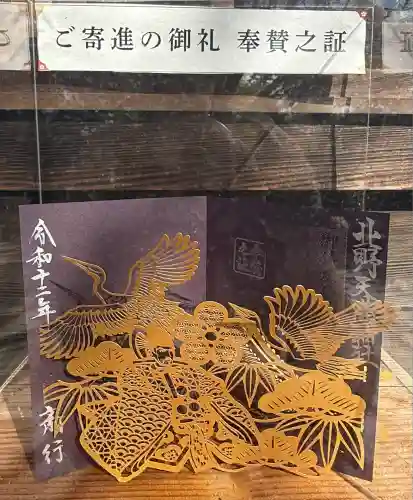 ご寄進の御礼 奉賛之証
北野天
令和十二年
斎行